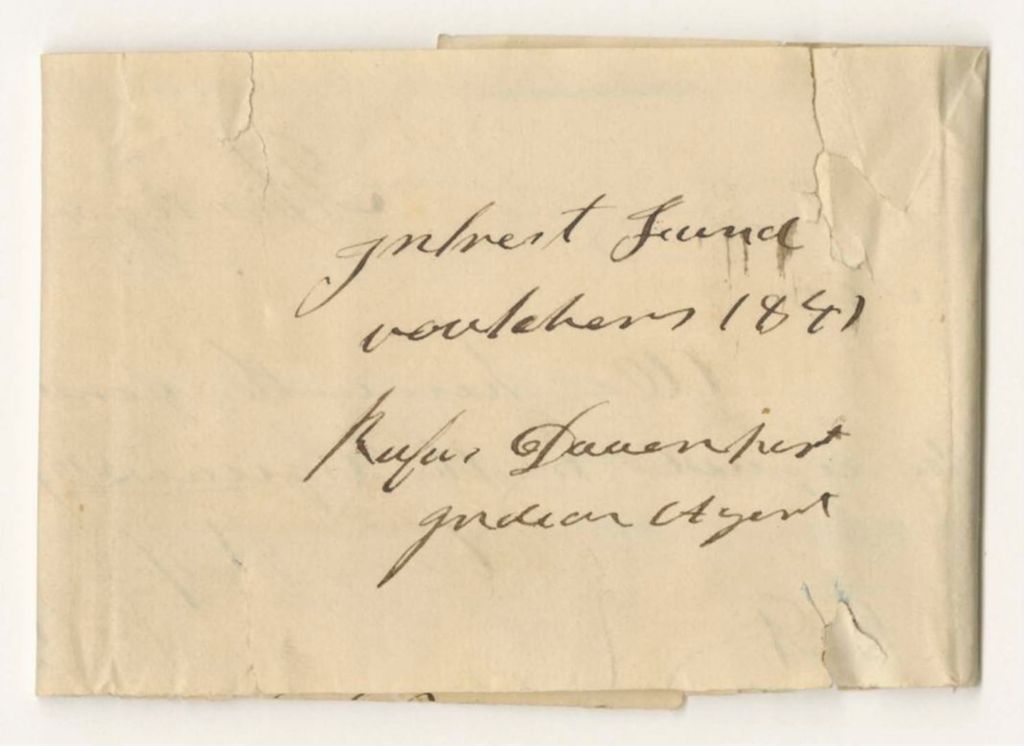 Intrest Fund
voutchers 1841
Rufus Davenport
Indian Agent